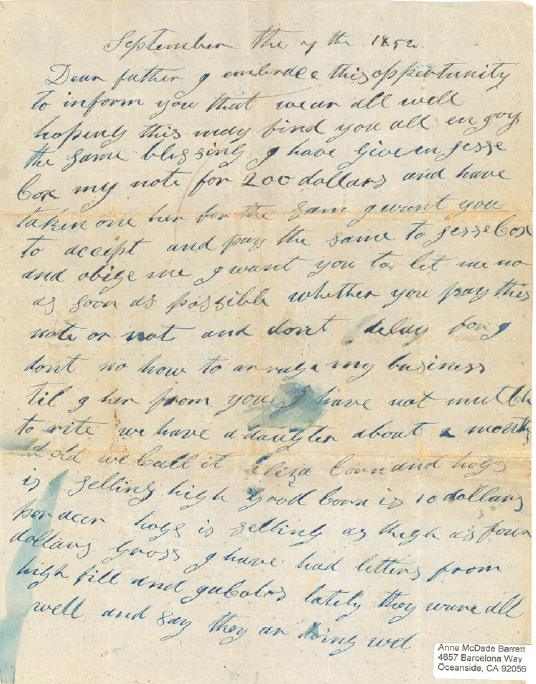 September the 7 th 1852
Dear father I embrace this oppertunity
to inform you that we ar all well
hoping this may find you all en goy
the same blessing I have given Jesse
Cox my note for 200 dollars and have
taken one her for the sam I want you
to acceipt and pay the same to Jesse Cox
and obige me I want you to let me no
as soon as possible whether you pay this
note or not and dont delay for I
dont no how to arrage my business
til I her from you I have not mutch
to rite we have a daughter about 2 month
old we Call it Corn and hogs
is selling high good Corn is 10 dollars
per hogs is selling as high as four
dollars gross I have had letters from
high fill and lately they ware all
well and say they ar doing well
Anne McDade Barrett
4657 Barcelona Way
Oceanside, CA 92056